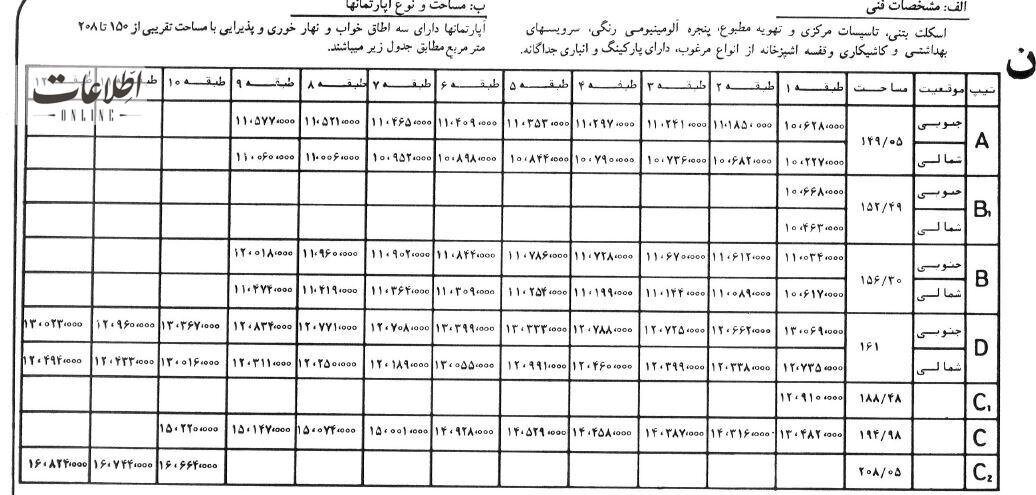 الف: مشخصات فنی
اسکلت بتنی، تاسیسات مرکزی و تهویه مطبوع، پنجره آلومینیومی رنگی، سرویسهای
بهداشتی و کاشیکاری وقفسه آشپزخانه از انواع مرغوب، دارای پارکینگ و انباری جداگانه.
ب: مساحت و نوع آپارتمانها
آپارتمانها دارای سه اطاق خواب و نهار خوری و پذیرایی با مساحت تقریبی از ۱۵۰ تا ۲۰۸
متر مربع مطابق جدول زیر میباشند.
ن
تیپ موقعیت مساحت طبقه ۱ طبقه ۲ طبقه ۳ طبقه ۴ طبقه ۵ طبقه ۶ طبقه ۷ طبقه ۸ طبقه ۹ طبقه ۱۰
اطلاعات
ONLINE
A جنوبی ۱۴۹/۰۵ ۱۰،۶۲۸،۰۰۰ ۱۱،۱۸۵،۰۰۰ ۱۱،۲۴۱،۰۰۰ ۱۱،۲۹۷،۰۰۰ ۱۱،۳۵۳،۰۰۰ ۱۱،۴۰۹،۰۰۰ ۱۱،۴۶۵،۰۰۰ ۱۱،۵۲۱،۰۰۰ ۱۱،۵۷۷،۰۰۰
شمالی ۱۰،۲۲۷،۰۰۰ ۱۰،۶۸۲،۰۰۰ ۱۰،۷۳۶،۰۰۰ ۱۰،۷۹۰،۰۰۰ ۱۰،۸۴۴،۰۰۰ ۱۰،۸۹۸،۰۰۰ ۱۰،۹۵۲،۰۰۰ ۱۱،۰۰۶،۰۰۰ ۱۱،۰۶۰،۰۰۰
B₁ جنوبی ۱۵۲/۴۹ ۱۰،۶۶۸،۰۰۰
شمالی ۱۰،۴۶۳،۰۰۰
B جنوبی ۱۵۶/۳۰ ۱۱،۰۳۴،۰۰۰ ۱۱،۶۱۲،۰۰۰ ۱۱،۶۷۰،۰۰۰ ۱۱،۷۲۸،۰۰۰ ۱۱،۷۸۶،۰۰۰ ۱۱،۸۴۴،۰۰۰ ۱۱،۹۰۲،۰۰۰ ۱۱،۹۶۰،۰۰۰ ۱۲،۰۱۸،۰۰۰
شمالی ۱۰،۶۱۷،۰۰۰ ۱۱،۰۸۹،۰۰۰ ۱۱،۱۴۴،۰۰۰ ۱۱،۱۹۹،۰۰۰ ۱۱،۲۵۴،۰۰۰ ۱۱،۳۰۹،۰۰۰ ۱۱،۳۶۴،۰۰۰ ۱۱،۴۱۹،۰۰۰ ۱۱،۴۷۴،۰۰۰
D جنوبی ۱۶۱ ۱۳،۰۶۹،۰۰۰ ۱۲،۶۶۲،۰۰۰ ۱۲،۷۲۵،۰۰۰ ۱۲،۷۸۸،۰۰۰ ۱۳،۳۳۳،۰۰۰ ۱۳،۳۹۹،۰۰۰ ۱۲،۷۰۸،۰۰۰ ۱۲،۷۷۱،۰۰۰ ۱۲،۸۳۴،۰۰۰ ۱۳،۳۶۷،۰۰۰ ۱۲،۹۶۰،۰۰۰ ۱۳،۰۲۳،۰۰۰
شمالی ۱۲،۷۳۵،۰۰۰ ۱۲،۳۳۸،۰۰۰ ۱۲،۳۹۹،۰۰۰ ۱۲،۴۶۰،۰۰۰ ۱۲،۹۹۱،۰۰۰ ۱۳،۰۵۵،۰۰۰ ۱۲،۱۸۹،۰۰۰ ۱۲،۲۵۰،۰۰۰ ۱۲،۳۱۱،۰۰۰ ۱۳،۰۱۶،۰۰۰ ۱۲،۴۳۳،۰۰۰ ۱۲،۴۹۴،۰۰۰
C₁ ۱۸۸/۴۸ ۱۲،۹۱۰،۰۰۰
C ۱۹۴/۹۸ ۱۳،۴۸۲،۰۰۰ ۱۴،۳۱۶،۰۰۰ ۱۴،۳۸۷،۰۰۰ ۱۴،۴۵۸،۰۰۰ ۱۴،۵۲۹،۰۰۰ ۱۴،۹۲۸،۰۰۰ ۱۵،۰۰۱،۰۰۰ ۱۵،۰۷۴،۰۰۰ ۱۵،۱۴۷،۰۰۰ ۱۵،۲۲۰،۰۰۰
C₂ ۲۰۸/۰۵ ۱۶،۶۶۴،۰۰۰ ۱۶،۷۴۴،۰۰۰ ۱۶،۸۲۴،۰۰۰